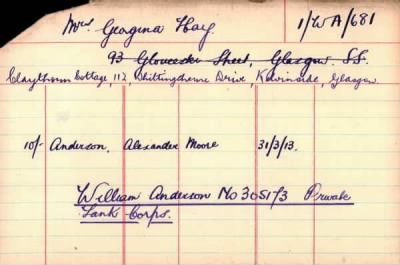 Mrs Georgina Hay. 1/WA/681
93 Gloucester Street, Glasgow. S.S.
Claythorn Cottage, 112, Whittingehame Drive, Kelvinside, Glasgow.
10/- Anderson, Alexander Moore 31/3/13.
William Anderson No 305173 Private
Tank Corps.